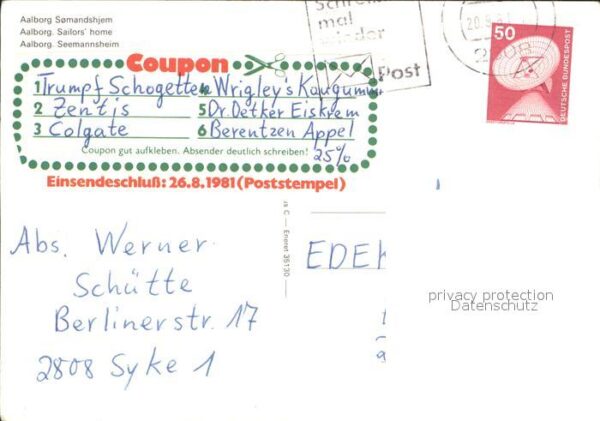 Aalborg Sømandshjem
Aalborg. Sailors' home
Aalborg. Seemannsheim
Schreib
mal
wieder
Post
20.8.81
2808
50
DEUTSCHE BUNDESPOST
Coupon
1 Trumpf Schogetten 4 Wrigley's Kaugummi
2 Zentis 5 Dr. Oetker Eiskrem
3 Colgate 6 Berentzen Appel
Coupon gut aufkleben. Absender deutlich schreiben! 25%
Einsendeschluß: 26.8.1981 (Poststempel)
Abs. Werner
Schütte
Berlinerstr. 17
2808 Syke 1
Eneret 35130
EDEK
privacy protection
Datenschutz